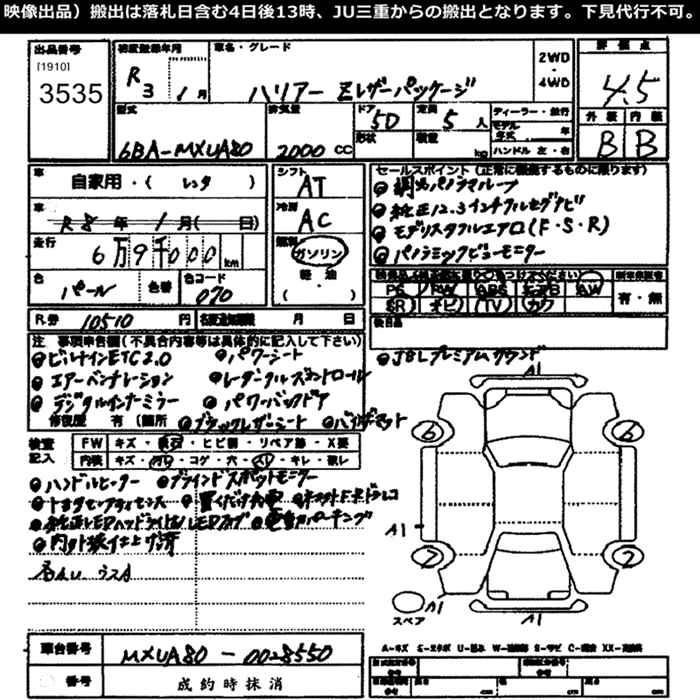 映像出品）搬出は落札日含む4日後13時、JU三重からの搬出となります。下見代行不可。
出品番号
[1910]
3535
初度登録年月
R3 1月
車名・グレード
ハリアー Zレザーパッケージ
2WD
4WD
評価点
4.5
外装 内装
B B
型式
6BA-MXUA80
排気量
2000 cc
ドア 5D
形状
定員 5人
積載 kg
ディーラー・並行
モデル年式 年
ハンドル 左・右
車
自家用・( レンタ )
車
R8年 1月( 日)
走行
6万9千000 km
色 パール
色番 カラーコード 070
シフト
AT
冷房
AC
燃料
ガソリン
軽・油
( )
セールスポイント（正常に機能するものに限ります）
調光パノラマルーフ
純正12.3インチフルセグナビ
モデリスタフルエアロ(F・S・R)
パノラミックビューモニター
PS PW ABS エアB AW
SR ナビ TV カワ
有・無
後日品
R券 10510 円
月 日
注 事項申告欄(不具合内容等は具体的に記入して下さい)
ビルトインETC2.0 パワーシート
エアーベンチレーション レーダークルーズコントロール
デジタルインナーミラー パワーバックドア
修復歴 有 (箇所 ブラックレザーシート バイザーマット
JBLプレミアムサウンド
検査記入
FW キズ・飛石・ヒビ割・リペア跡・X要
内装 キズ・汚レ・コゲ・穴・スレ・キレ・破レ
ハンドルヒーター ブラインドスポットモニター
トヨタセーフティセンス 置くだけ充電 前後ドラレコ
純正LEDヘッドライト/LEDフォグ 電動パーキング
内外装仕上ゲ済
A1
6 6
A1
7 7
スペア
A1
A1
車台番号 MXUA80-0028550
番号 成約時抹消